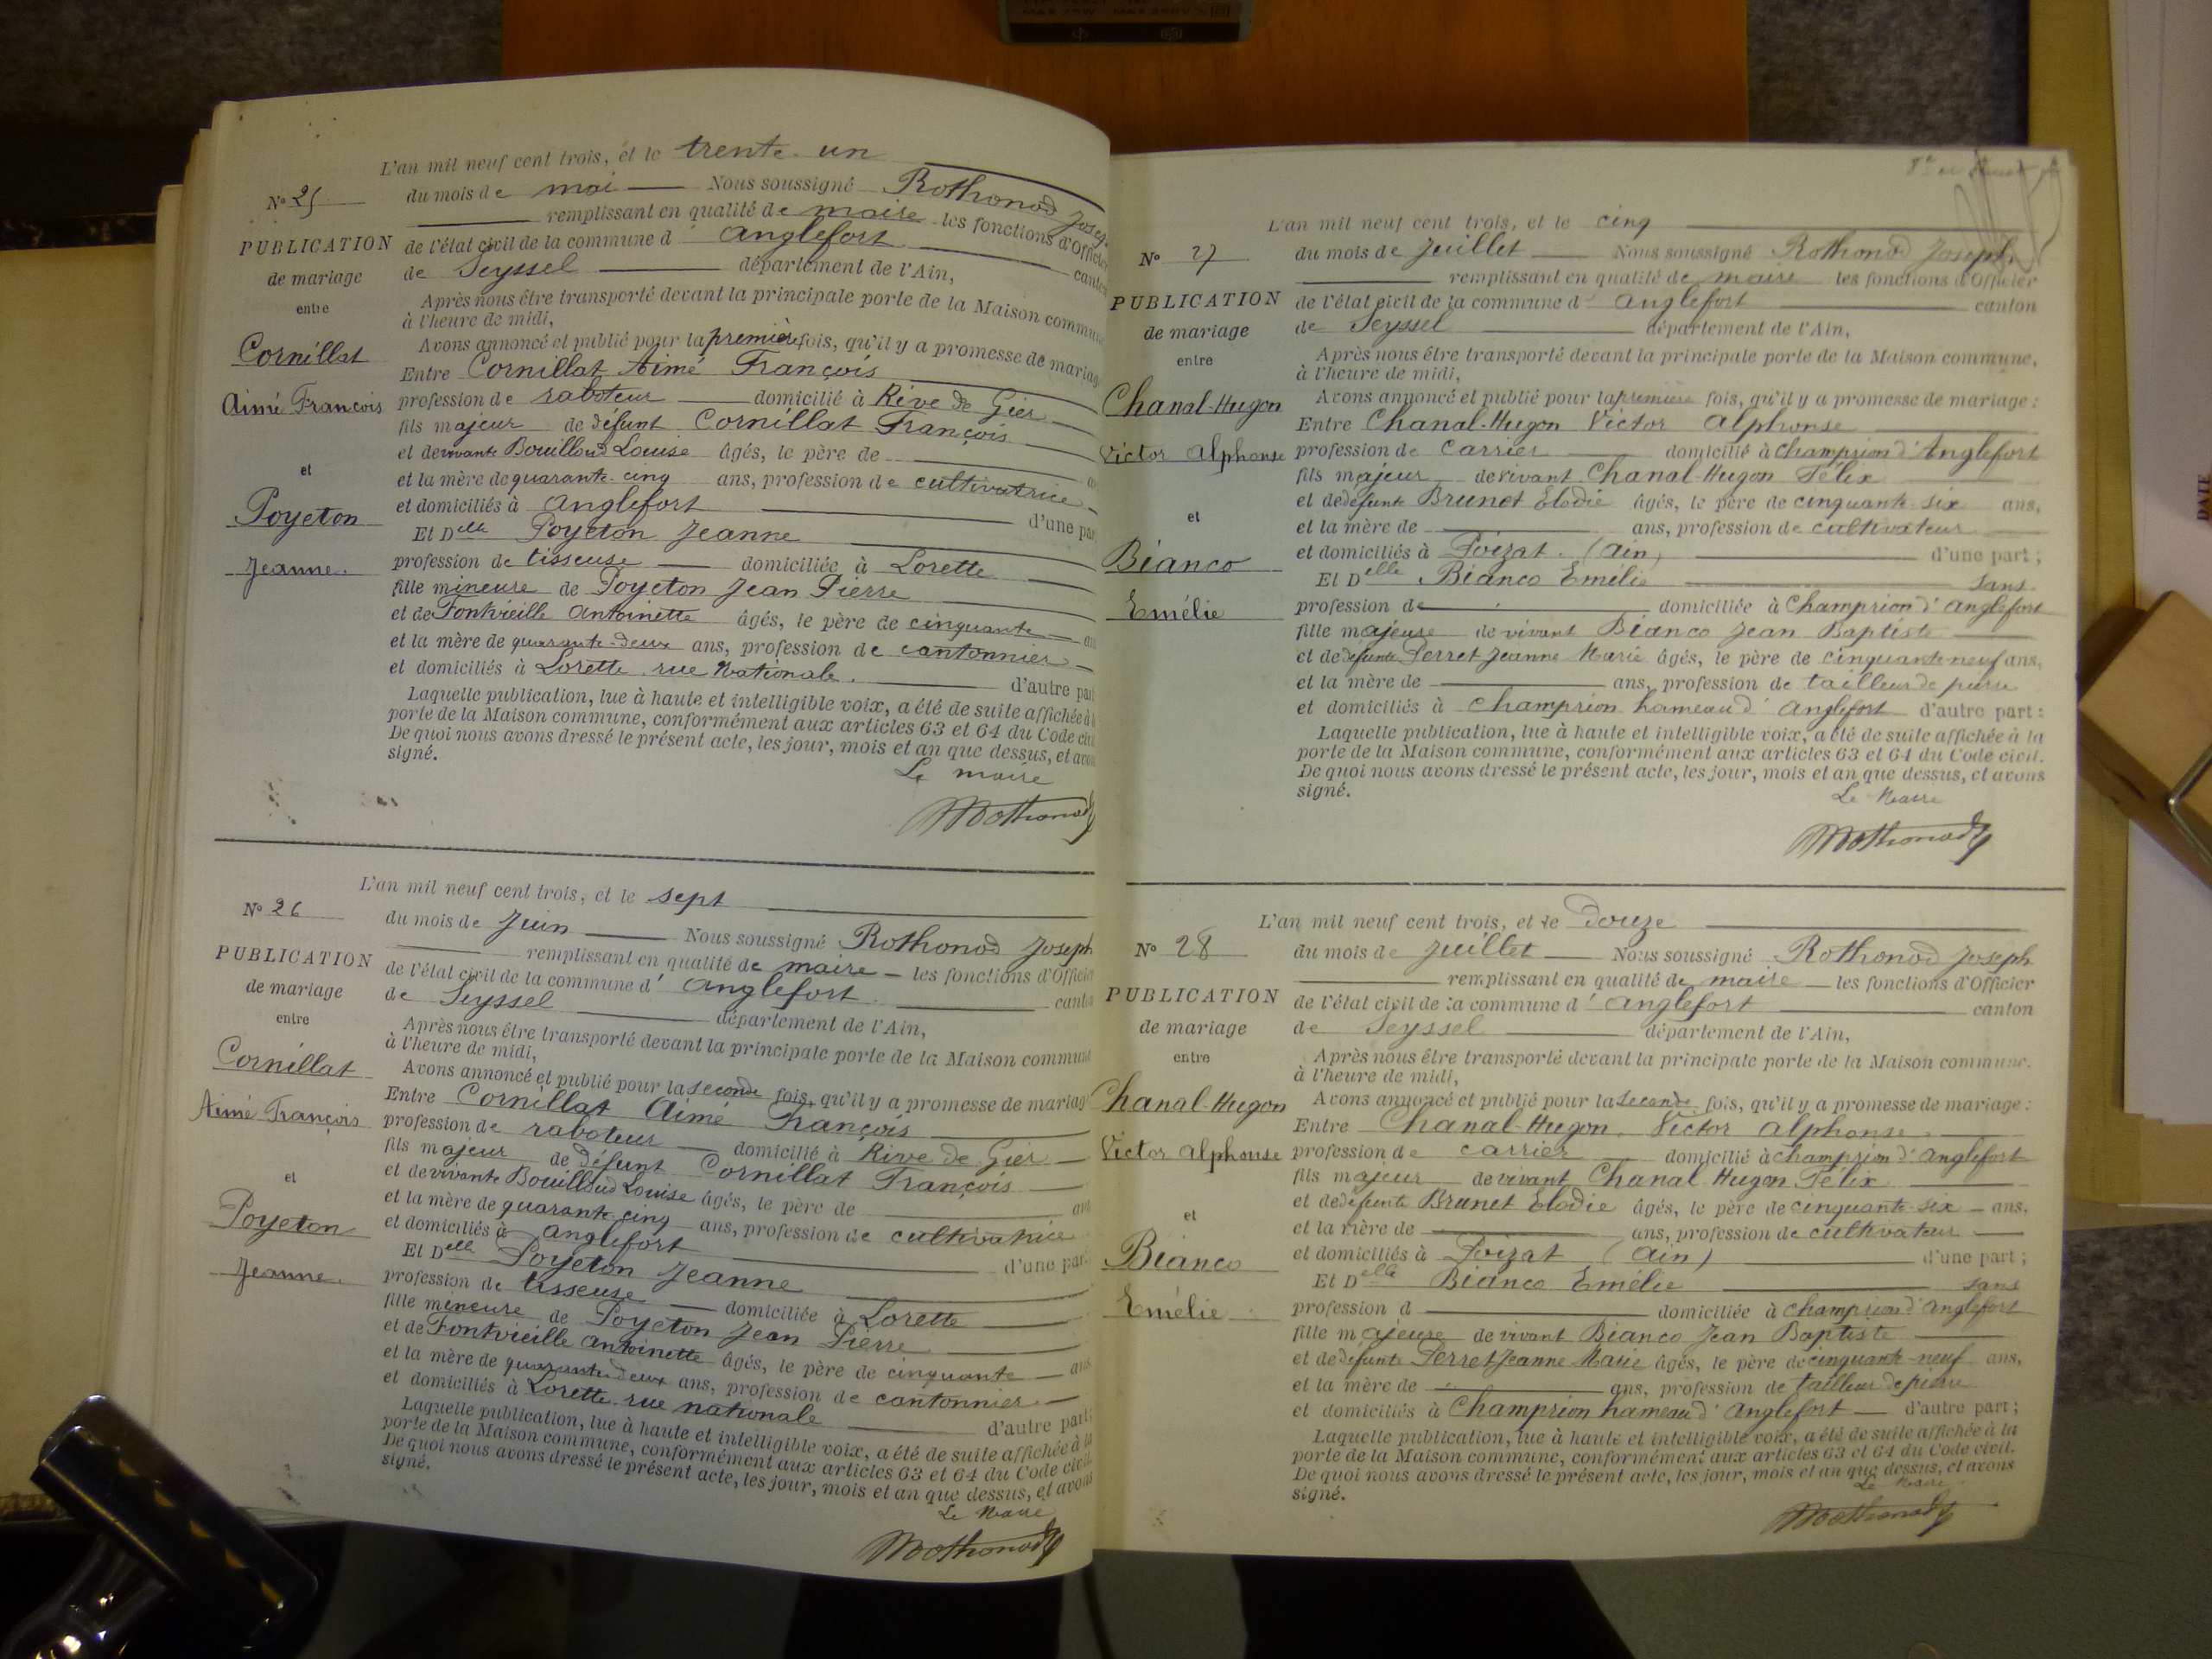 L'an mil neuf cent trois, et le trente-un
Nº 25 du mois de mai Nous soussigné Rothonod Joseph
remplissant en qualité de maire les fonctions d'Officier
PUBLICATION de l'état civil de la commune d'Anglefort canton
de mariage de Seyssel département de l'Ain,
entre Après nous être transporté devant la principale porte de la Maison commune
à l'heure de midi,
Avons annoncé et publié pour la première fois, qu'il y a promesse de mariage
Cornillat Entre Cornillat Aimé François
Aimé François profession de raboteur domicilié à Rive de Gier
fils majeur de défunt Cornillat François
et de vivante Bouilloud Louise âgés, le père de
et et la mère de quarante-cinq ans, profession de cultivatrice
et domiciliés à Anglefort d'une part
Poyeton Et Delle Poyeton Jeanne
Jeanne. profession de tisseuse domiciliée à Lorette
fille mineure de Poyeton Jean Pierre
et de Fontvieille Antoinette âgés, le père de cinquante ans
et la mère de quarante-deux ans, profession de cantonnier
et domiciliés à Lorette rue Nationale. d'autre part
Laquelle publication, lue à haute et intelligible voix, a été de suite affichée à la
porte de la Maison commune, conformément aux articles 63 et 64 du Code civil
De quoi nous avons dressé le présent acte, les jour, mois et an que dessus, et avons
signé.
Le maire
Rothonod
L'an mil neuf cent trois, et le sept
Nº 26 du mois de Juin Nous soussigné Rothonod Joseph
remplissant en qualité de maire les fonctions d'Officier
PUBLICATION de l'état civil de la commune d'Anglefort canton
de mariage de Seyssel département de l'Ain,
entre Après nous être transporté devant la principale porte de la Maison commune
à l'heure de midi,
Avons annoncé et publié pour la seconde fois, qu'il y a promesse de mariage
Cornillat Entre Cornillat Aimé François
Aimé François profession de raboteur domicilié à Rive de Gier
fils majeur de défunt Cornillat François
et de vivante Bouilloud Louise âgés, le père de ans
et et la mère de quarante-cinq ans, profession de cultivatrice
et domiciliés à Anglefort d'une part
Poyeton Et Delle Poyeton Jeanne
Jeanne. profession de tisseuse domiciliée à Lorette
fille mineure de Poyeton Jean Pierre
et de Fontvieille Antoinette âgés, le père de cinquante ans
et la mère de quarante-deux ans, profession de cantonnier
et domiciliés à Lorette rue nationale d'autre part;
Laquelle publication, lue à haute et intelligible voix, a été de suite affichée à la
porte de la Maison commune, conformément aux articles 63 et 64 du Code civil.
De quoi nous avons dressé le présent acte, les jour, mois et an que dessus, et avons
signé.
Le Maire
Rothonod
L'an mil neuf cent trois, et le cinq
Nº 27 du mois de Juillet Nous soussigné Rothonod Joseph
remplissant en qualité de maire les fonctions d'Officier
PUBLICATION de l'état civil de la commune d'Anglefort canton
de mariage de Seyssel département de l'Ain,
entre Après nous être transporté devant la principale porte de la Maison commune,
à l'heure de midi,
Avons annoncé et publié pour la première fois, qu'il y a promesse de mariage :
Chanal-Hugon Entre Chanal-Hugon Victor Alphonse
Victor Alphonse profession de carrier domicilié à Champrion d'Anglefort
fils majeur de vivant Chanal-Hugon Félix
et de défunte Brunet Elodie âgés, le père de cinquante-six ans,
et et la mère de ans, profession de cultivateur
et domiciliés à Poizat. (Ain) d'une part ;
Bianco Et Delle Bianco Emélie sans
Emélie profession de domiciliée à Champrion d'Anglefort
fille majeure de vivant Bianco Jean Baptiste
et de défunte Perret Jeanne Marie âgés, le père de cinquante-neuf ans,
et la mère de ans, profession de tailleur de pierre
et domiciliés à Champrion hameau d'Anglefort d'autre part :
Laquelle publication, lue à haute et intelligible voix, a été de suite affichée à la
porte de la Maison commune, conformément aux articles 63 et 64 du Code civil.
De quoi nous avons dressé le présent acte, les jour, mois et an que dessus, et avons
signé.
Le Maire
Rothonod
L'an mil neuf cent trois, et le Douze
Nº 28 du mois de Juillet Nous soussigné Rothonod Joseph
remplissant en qualité de maire les fonctions d'Officier
PUBLICATION de l'état civil de la commune d'Anglefort canton
de mariage de Seyssel département de l'Ain,
entre Après nous être transporté devant la principale porte de la Maison commune.
à l'heure de midi,
Avons annoncé et publié pour la seconde fois, qu'il y a promesse de mariage :
Chanal-Hugon Entre Chanal-Hugon. Victor Alphonse.
Victor Alphonse profession de carrier domicilié à Champrion d'Anglefort
fils majeur de vivant Chanal Hugon Félix
et de défunte Brunet Elodie âgés, le père de cinquante-six ans,
et et la mère de ans, profession de cultivateur
et domiciliés à Poizat (Ain) d'une part ;
Bianco Et Delle Bianco Emélie sans
Emélie profession d domiciliée à Champrion d'Anglefort
fille majeure de vivant Bianco Jean Baptiste
et de défunte Perret Jeanne Marie âgés, le père de cinquante-neuf ans,
et la mère de ans, profession de tailleur de pierre
et domiciliés à Champrion hameau d'Anglefort d'autre part ;
Laquelle publication, lue à haute et intelligible voix, a été de suite affichée à la
porte de la Maison commune, conformément aux articles 63 et 64 du Code civil.
De quoi nous avons dressé le présent acte, les jour, mois et an que dessus, et avons
signé.
Le Maire
Rothonod
DATE